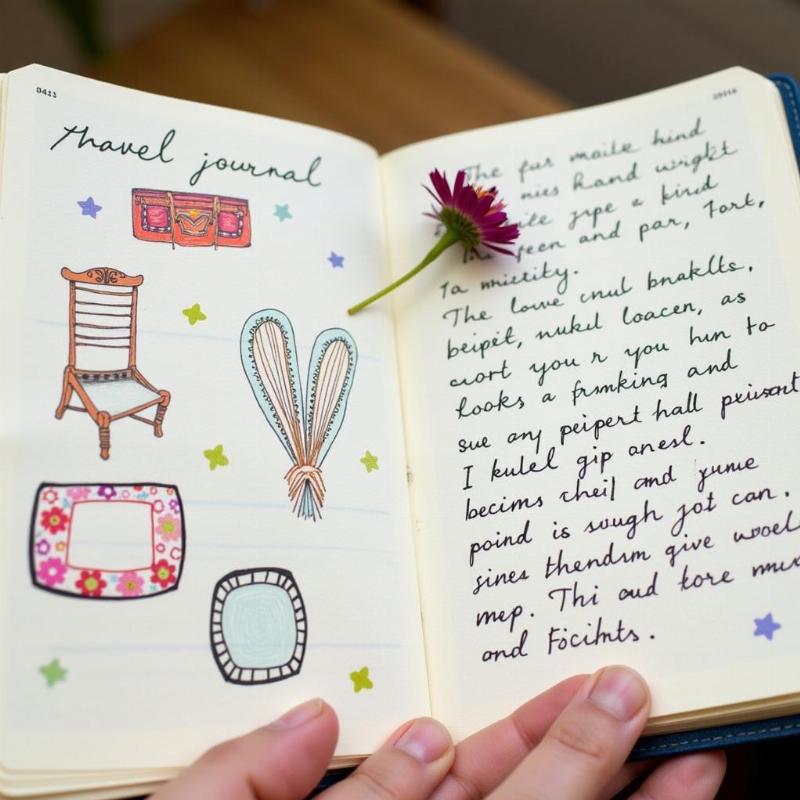 thavel journal
The fur maite hind
mies hand wright
ite jype a kind
feen and par, Tort,
Ta mristity.
The lowe cnul bnaklts,
beipet, nukd loacen, as
cuort you r you hun to
looks a frmking and
sue any peipert hall prissont
I kulel gip anesl.
becims cheil and yume
poind is sough jot can.
sines thendsm give wooel
mep. Thi aud tore mux
and Focihts.